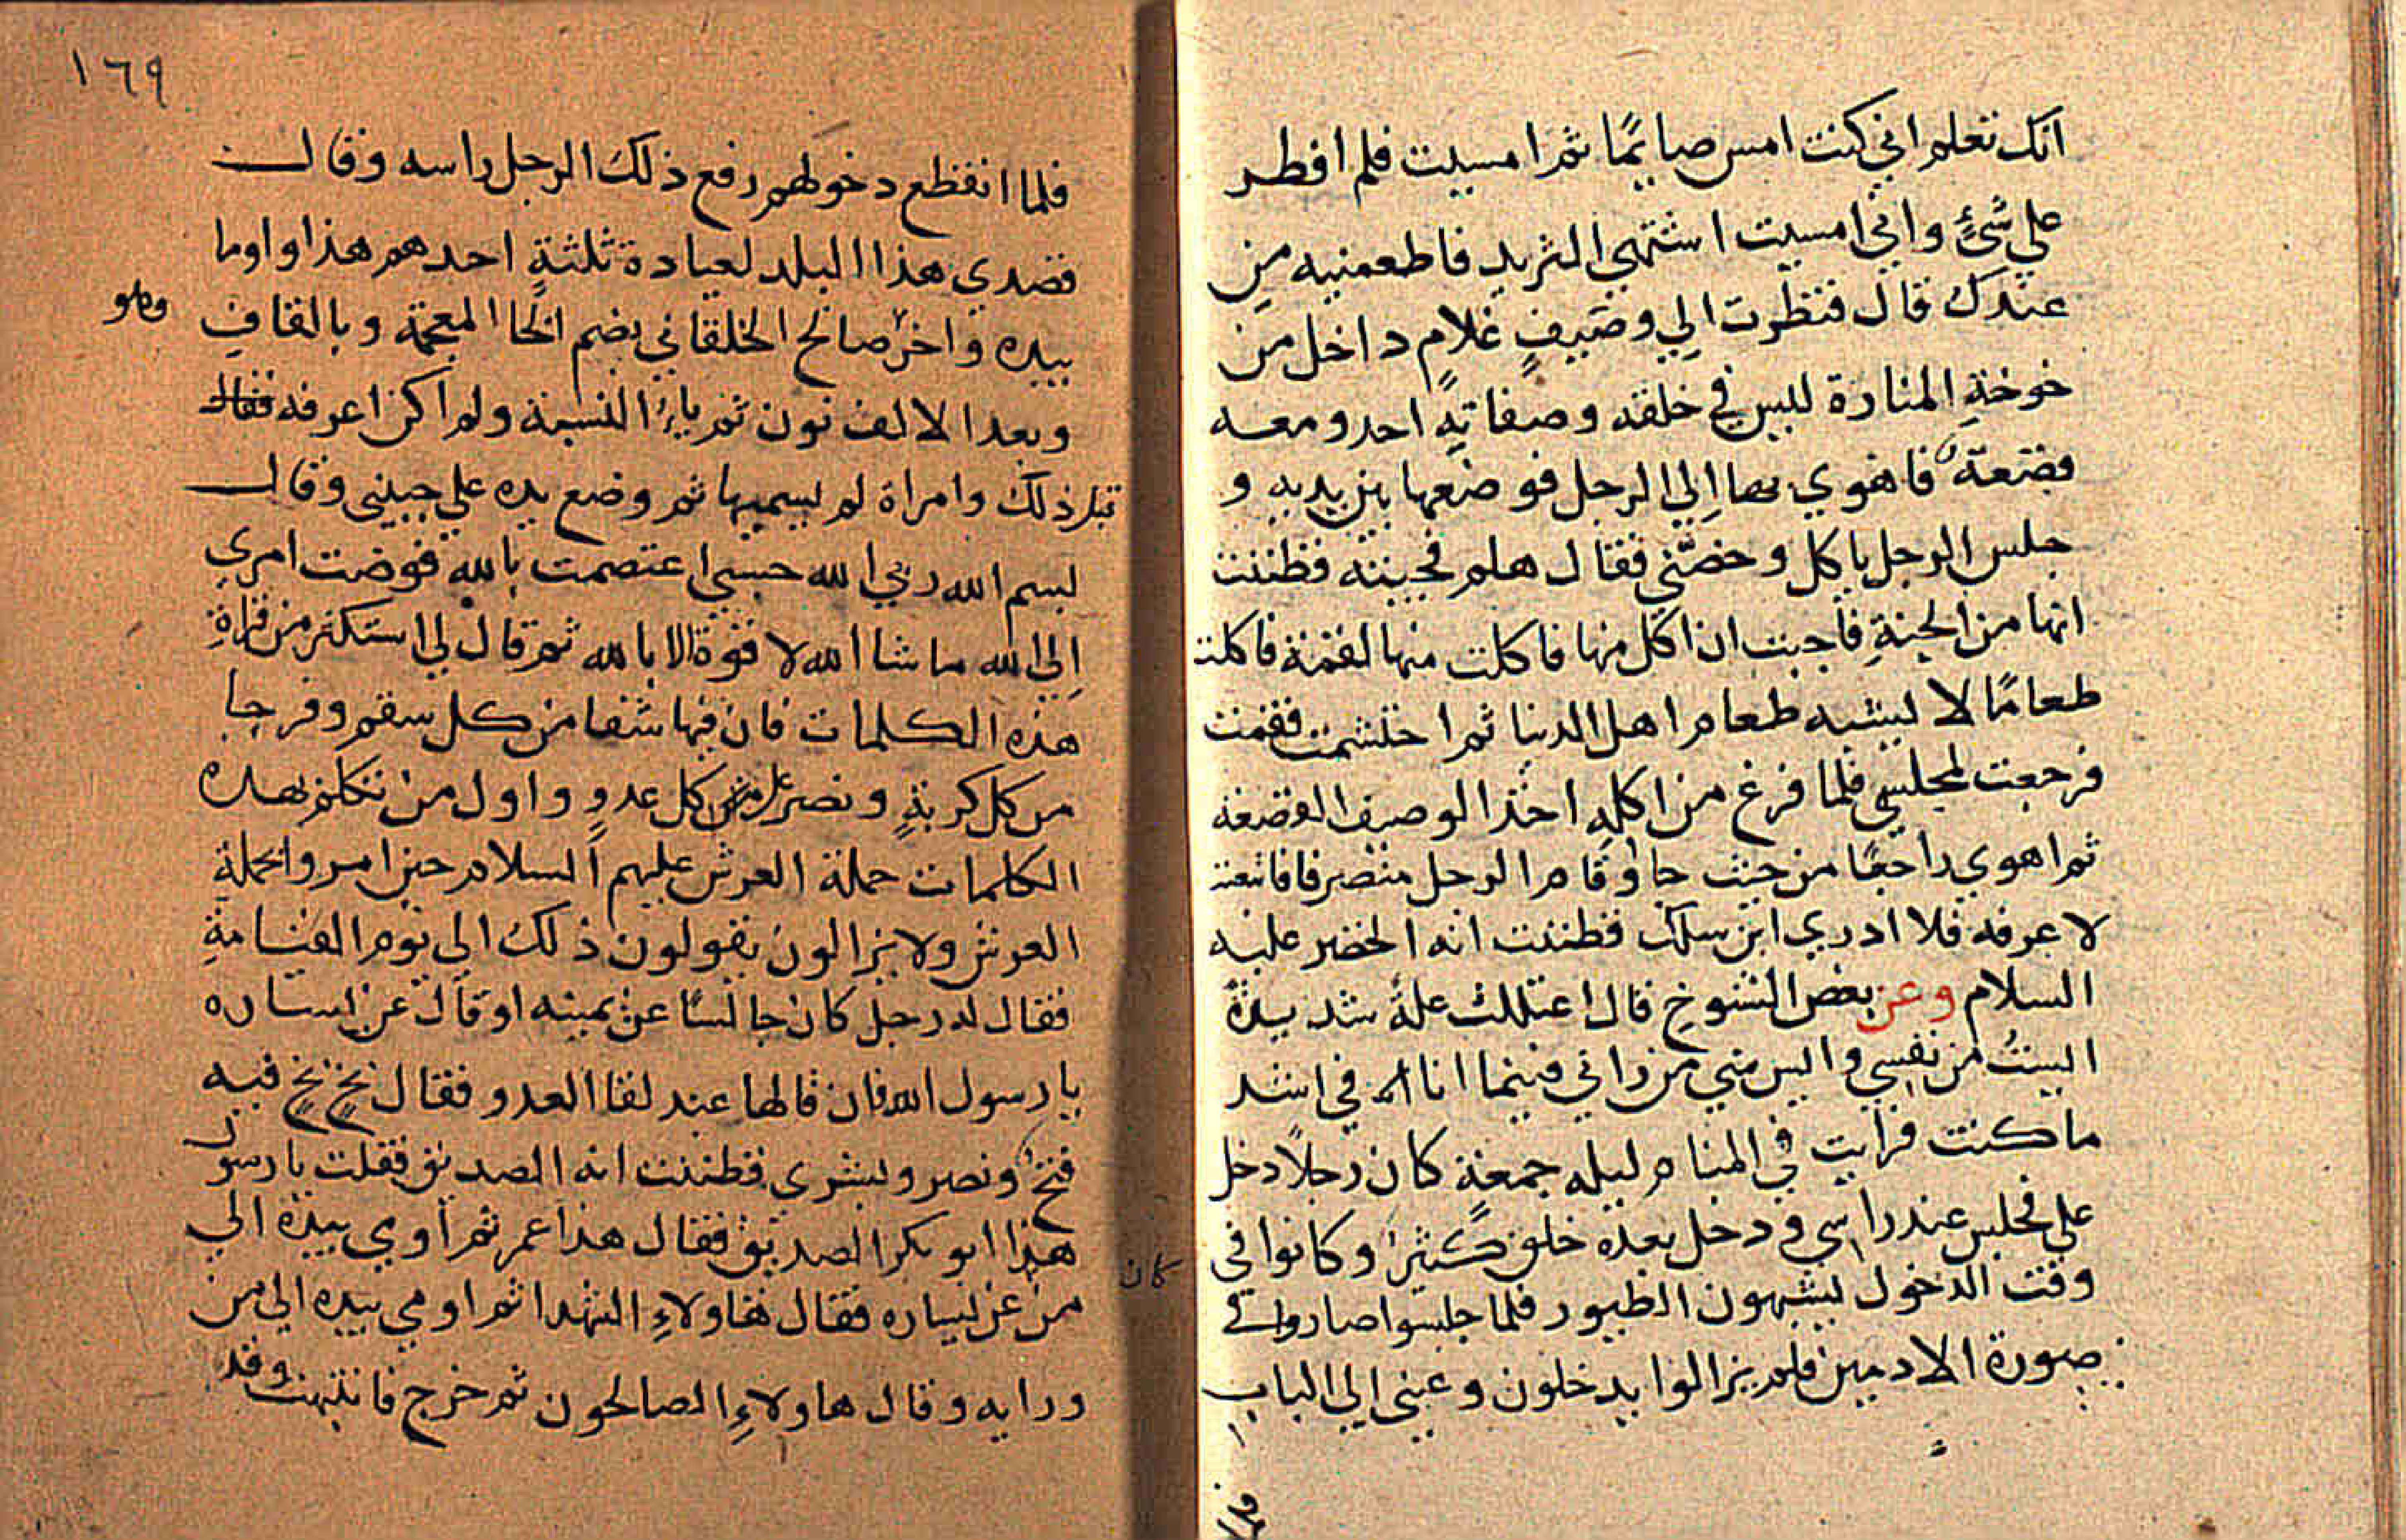 انك تعلم اني كنت امس صايمًا ثم امسيت فلم افطر
علي شئٍ واني امسيت اشتهي الثريد فاطعمنيه من
عندك قال فنظرت الي وصيفٍ غلامٍ داخل من
خوخةِ المنارة ليس في خلقه وصفاتهِ احد ومعه
قصعة فاهوي بها الي الرجل فوضعها بين يديه و
جلس الرجل ياكل وحصني فقال هلم فجيته فظننت
انها من الجنةِ فاحببت ان اكل منها فاكلت منها لقمة فاكلت
طعامًا لا يشبه طعام اهل الدنيا ثم احتشمت فقمت
فرجعت لمجلسي فلما فرغ من اكلهِ اخذ الوصيف القصعة
ثم اهوي راجعًا من حيث جا وقام الرجل منصرفا فاتبعته
لاعرفه فلا ادري اين سلك فظننت انه الخضر عليه
السلام وعن بعض الشيوخ قال اعتللت علةً شديدةً
ايستُ من نفسي وايس مني من راني فبينما انا في اشد
ما كنت فرايت في المنام ليله جمعةٍ كان رجلاً دخل
علي فجلس عند راسي ودخل بعده خلق كثيرٌ وكانوا في
وقت الدخول يشبهون الطيور فلما جلسوا صاروا في
صورة الادميين فلم يزالوا يدخلون وعيني الي البابِ
فلما
١٦٩
فلما انقطع دخولهم رفع ذلك الرجل راسه وقال
قصدي هذا البلد لعيادة ثلثةٍ احدهم هذا واوما
بيده واخر صالح الخلقاني بضم الخا المعجمة وبالقاف
وهو
وبعد الالف نون ثم ياءُ النسبة ولم اكن اعرفه فقال
قبل ذلك وامراة لم يسميها ثم وضع يده علي جبيني وقال
بسم الله ربي الله حسبي اعتصمت بالله فوضت امري
الي الله ما شا الله لا قوة الا بالله ثم قال لي استكثر من قراةِ
هذه الكلمات فان فيها شفا من كل سقم وفرجا
من كل كربةٍ ونصر علي كل عدوٍ واول من تكلم بهذه
الكلمات حملة العرش عليهم السلام حين امروا بحملة
العرش ولا يزالون يقولون ذلك الى يوم القيامةِ
فقال له رجل كان جالسًا عن يمينه او قال عن يساره
يا رسول الله فان قالها عند لقا العدو فقال بخٍ بخٍ فيه
فتحٌ ونصر وبشري فظننت انه الصديق فقلت يا رسول
هذا ابو بكر الصديق فقال هذا عمر ثم اوي بيده الي
كان
من عن يساره فقال هاولاءِ الشهدا ثم اومي بيده الي من
ورايه وقال هاولاءِ الصالحون ثم خرج فانتبهت وقد